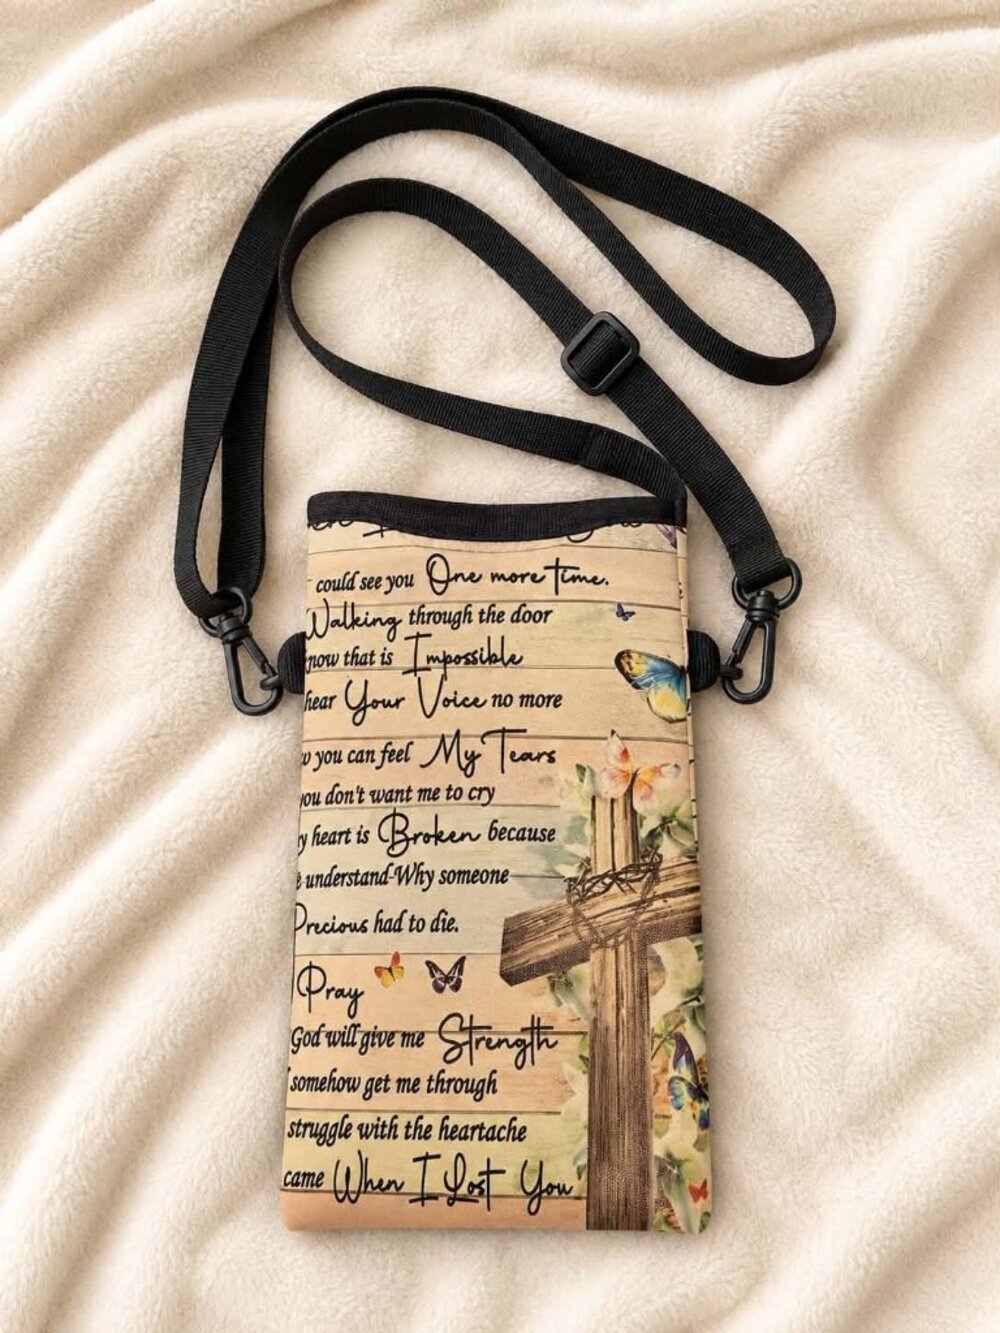 could see you One more time.
Walking through the door
now that is Impossible
hear Your Voice no more
you can feel My Tears
you don't want me to cry
heart is Broken because
understand-Why someone
Precious had to die.
I Pray
God will give me Strength
somehow get me through
struggle with the heartache
came When I Lost You